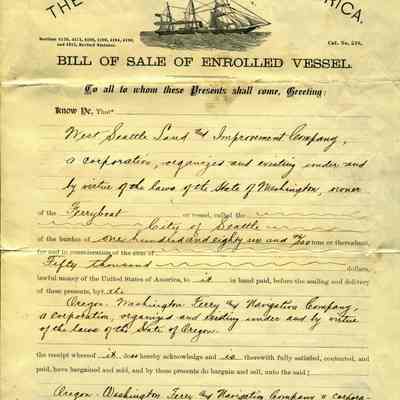 THE
RICA.
Sections 4170, 4171, 4192, 4196, 4194, 4196,
and 4312, Revised Statutes.
Cat. No. 526.
BILL OF SALE OF ENROLLED VESSEL.
To all to whom these Presents shall come, Greeting:
Know Ye, That
West Seattle Land & Improvement Company,
a corporation, organized and existing under and
by virtue of the laws of the State of Washington, owner
of the Ferryboat or vessel, called the
City of Seattle
of the burden of one hundred and eighty six and tons or thereabout,
for and in consideration of the sum of
Fifty thousand dollars,
lawful money of the United States of America, to it in hand paid, before the sealing and delivery
of these presents, by the
Oregon, Washington Ferry & Navigation Company,
a corporation, organized and existing under and by virtue
of the laws of the State of Oregon.
the receipt whereof it does hereby acknowledge and is therewith fully satisfied, contented, and
paid, have bargained and sold, and by these presents do bargain and sell, unto the said
Oregon, Washington Ferry & Navigation Company a corpora-